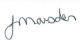 J Marsden